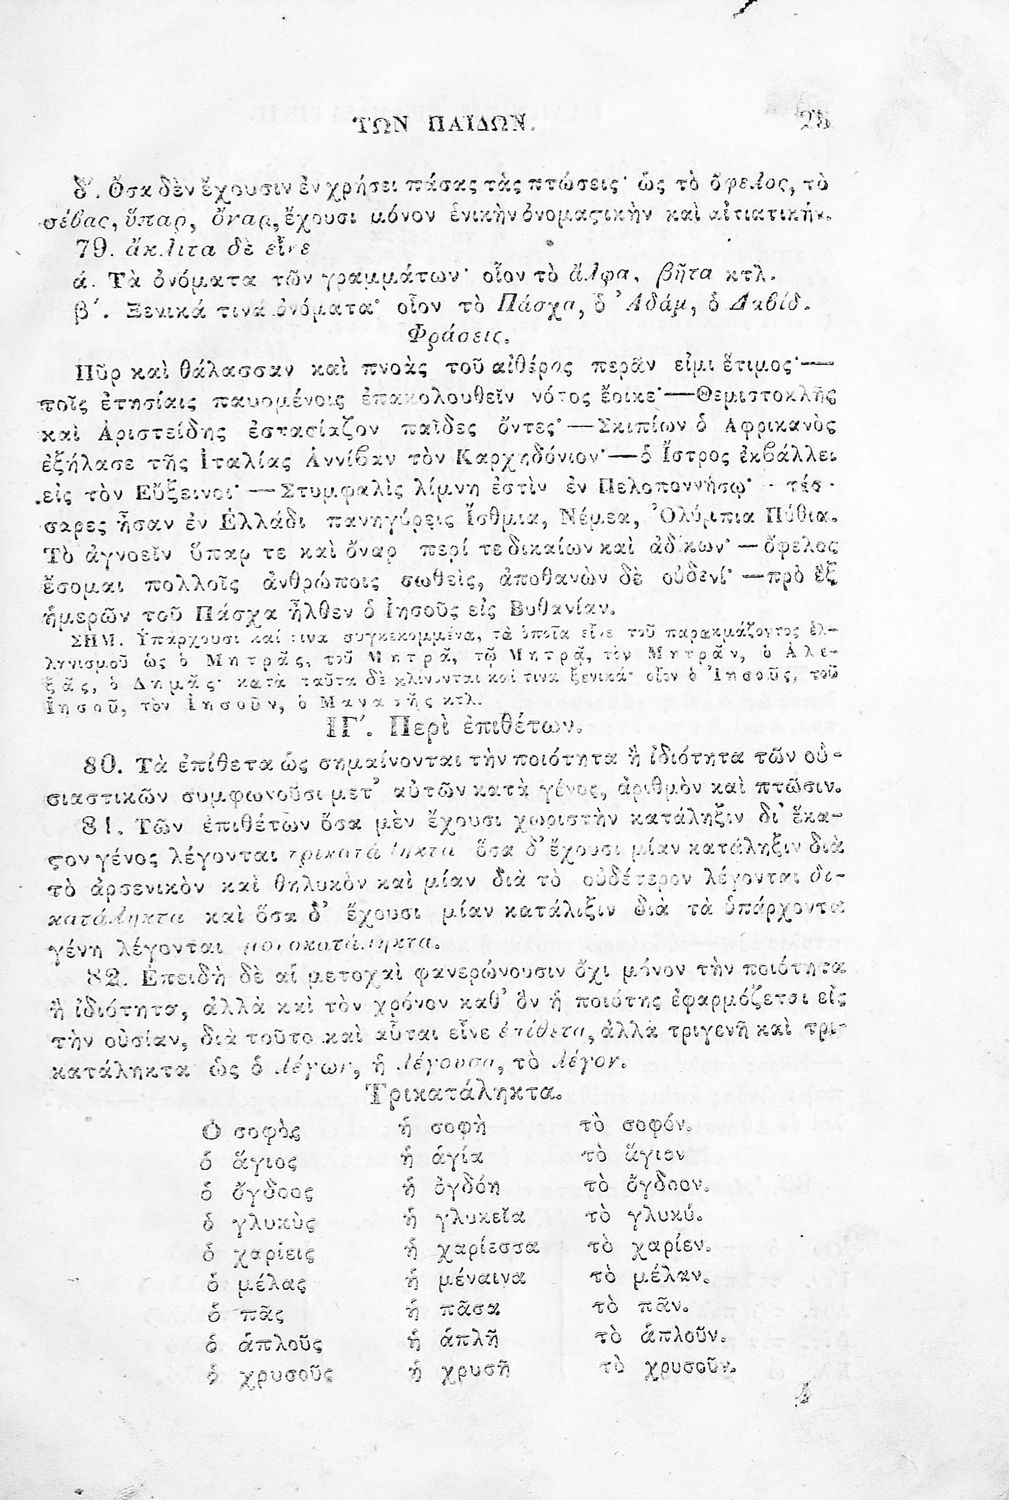 ΤΩΝ ΠΑΙΔΩΝ. 25
δ΄. Ὅσα δὲν ἔχουσιν ἐν χρήσει πάσας τὰς πτώσεις· ὡς τὸ ὄφελος, τὸ
σέβας, ὕπαρ, ὄναρ, ἔχουσι μόνον ἑνικὴν ὀνομαςικὴν καὶ αἰτιατικήν.
79. ἄκλιτα δὲ εἶνε
ά. Τὰ ὀνόματα τῶν γραμμάτων· οἷον τὸ ἄλφα, βῆτα κτλ.
β΄. Ξενικά τινα ὀνόματα· οἷον τὸ Πάσχα, ὁ Ἀδάμ, ὁ Δαβίδ.
Φράσεις.
Πῦρ καὶ θάλασσαν καὶ πνοὰς τοῦ αἰθέρος περᾶν εἰμι ἕτιμος·—
τοῖς ἐτησίαις παυομένοις ἐπακολουθεῖν νότος ἔοικε·—Θεμιστοκλῆς
καὶ Ἀριστείδης ἐστασίαζον παῖδες ὄντες·—Σκιπίων ὁ Ἀφρικανὸς
ἐξήλασε τῆς Ἰταλίας Ἀννίβαν τὸν Καρχηδόνιον·—ὁ Ἴστρος ἐκβάλλει
εἰς τὸν Εὔξεινον·—Στυμφαλὶς λίμνη ἐστὶν ἐν Πελοποννήσῳ· - τέσ-
σαρες ἦσαν ἐν Ἑλλάδι πανηγύρεις Ἴσθμια, Νέμεα, Ὀλύμπια Πύθια.
Τὸ ἀγνοεῖν ὕπαρ τε καὶ ὄναρ περί τε δικαίων καὶ ἀδίκων·—ὄφελος
ἔσομαι πολλοῖς ἀνθρώποις σωθεὶς, ἀποθανὼν δὲ οὐδενί·—πρὸ ἓξ
ἡμερῶν τοῦ Πάσχα ἦλθεν ὁ Ἰησοῦς εἰς Βυθανίαν.
ΣΗΜ. Ὑπάρχουσι καί τινα συγκεκομμένα, τὰ ὁποῖα εἶνε τοῦ παρακμάζοντος ἑλ-
ληνισμοῦ ὡς ὁ Μητρᾶς, τοῦ Μητρᾶ, τῷ Μητρᾷ, τὸν Μητρᾶν, ὁ Ἀλε-
ξᾶς, ὁ Δημᾶς· κατὰ ταῦτα δὲ κλίνονται καί τινα ξενικά· οἷον ὁ Ἰησοῦς, τοῦ
Ἰησοῦ, τὸν Ἰησοῦν, ὁ Μανασῆς κτλ.
ΙΓ΄. Περὶ ἐπιθέτων.
80. Τὰ ἐπίθετα ὡς σημαίνονται τὴν ποιότητα ἢ ἰδιότητα τῶν οὐ-
σιαστικῶν συμφωνοῦσι μετ᾽ αὐτῶν κατὰ γένος, ἀριθμὸν καὶ πτῶσιν.
81. Τῶν ἐπιθέτων ὅσα μὲν ἔχουσι χωριστὴν κατάληξιν δι᾽ ἕκα-
ςον γένος λέγονται τρικατάληκτα ὅσα δ᾽ ἔχουσι μίαν κατάληξιν διὰ
τὸ ἀρσενικὸν καὶ θηλυκὸν καὶ μίαν διὰ τὸ οὐδέτερον λέγονται δι-
κατάληκτα καὶ ὅσα δ᾽ ἔχουσι μίαν κατάλιξιν διὰ τὰ ὑπάρχοντα
γένη λέγονται μονοκατάληκτα.
82. Ἐπειδὴ δὲ αἱ μετοχαὶ φανερώνουσιν ὄχι μόνον τὴν ποιότητα
ἢ ἰδιότητα, ἀλλὰ καὶ τὸν χρόνον καθ᾽ ὃν ἡ ποιότης ἐφαρμόζεται εἰς
τὴν οὐσίαν, διὰ τοῦτο καὶ αὗται εἶνε ἐπίθετα, ἀλλὰ τριγενῆ καὶ τρι-
κατάληκτα ὡς ὁ λέγων, ἡ λέγουσα, τὸ λέγον.
Τρικατάληκτα.
Ὁ σοφὸς ἡ σοφὴ τὸ σοφόν.
ὁ ἅγιος ἡ ἁγία τὸ ἅγιον
ὁ ὄγδοος ἡ ὀγδόη τὸ ὄγδοον.
ὁ γλυκὺς ἡ γλυκεῖα τὸ γλυκύ.
ὁ χαρίεις ἡ χαρίεσσα τὸ χαρίεν.
ὁ μέλας ἡ μέναινα τὸ μέλαν.
ὁ πᾶς ἡ πᾶσα τὸ πᾶν.
ὁ ἁπλοῦς ἡ ἁπλῆ τὸ ἁπλοῦν.
ὁ χρυσοῦς ἡ χρυσῆ τὸ χρυσοῦν.